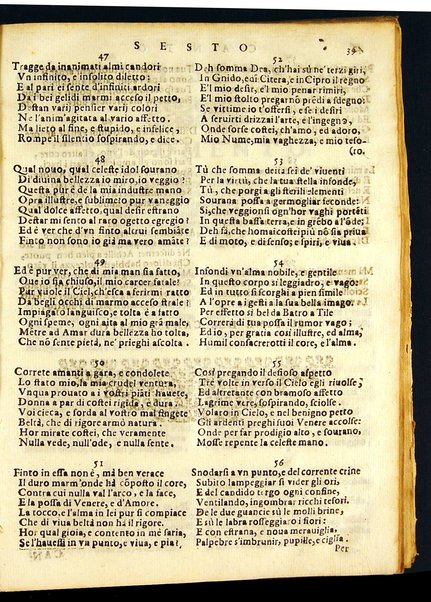 SESTO
39
47
Tragge da inanimati almi candori
Vn infinito, e insolito diletto:
E al pari ei sente d'infiniti ardori
Da i bei gelidi marmi acceso il petto,
Destan varij pensier varij colori
Ne l'anim'agitata al vario affetto.
Ma lieto al fine, e stupido, e infelice,
Rompe il silentio sospirando, e dice.
48
Qual nouo, qual celeste idol sourano
Di diuina bellezza io miro, io veggio?
Questa pur è de la mia industre mano
Opra illustre, e sublime; o pur vaneggio
Qual dolce affetto, qual desir estrano
Destar mi sento al raro oggetto egregio?
Ed è ver che d'vn finto altrui sembiãte
Finto non sono io già ma vero amãte?
49
Ed è pur ver, che di mia man sia fatto,
Que io sia chiuso, il mio carcer fatale?
Pur vuole il Ciel, ch'esca a ferirmi ratto
Da begli occhi di marmo acceso strale?
Impiagato languisco, e tolta è a fatto
Ogni speme, ogni aita al mio grã male,
Mẽtre ad Amar dura bellezza ho tolto,
Che nõ sente pietà, ne' prieghi ascolta.
50
Correte amanti a gara, e condolete
Lo stato mio, la mia crudel ventura,
Vnqua prouato a i vostri piãti hauete,
Donna a par di costei rigida, e dura,
Voi cieca, e sorda al vostro mal fingete
Beltà, che di rigore armò natura.
Hor mirate costei, che veramente
Nulla vede, null'ode, e nulla sente.
51
Finto in essa non è, mà ben verace
Il duro marm'onde hà cõposto il core,
Contra cui nulla val l'arco, e la face,
E la possa di Venere, e d'Amore.
La tocco, e l'alma in lei pur si compiace
Che di viua beltà non hà il rigore.
Hor qual gioia, e contento in me saria,
Se l'hauessi in vn punto, e viua, e pia?
52
Deh somma Dea, ch'hai sù ne' terzi giri,
In Gnido, ed in Citera, e in Cipro il regno
E'l mio desir, e'l mio penar rimiri,
E'l mio stolto pregar nõ prẽdi a sdegno:
Se vittime io t'offersi, e se i desiri
A seruirti drizzai l'arte, e l'ingegno,
Onde sorse costei, ch'amo, ed adoro,
Mio Nume, mia vaghezza, e mio teso-
(ro.
53
Tù che somma deità sei de' viuenti
Per la virtù, che la tua stella infonde,
Tù, che porgi a gli sterili elementi
Sourana possa a germogliar seconde:
Sì, che veggionsi ogn'hor vaghi portẽti
In questa bassa terra, e in grẽbo a l'õde;
Deh fà, che homai costei più nõ sia priua
E di moto, e di senso; e spiri, e viua.
54
Insondi vn'alma nobile, e gentile
In questo corpo sì leggiadro, e vago:
Ed in tutto si scorghi a pien simile
A l'opre a i gesti a la sua bella imago.
Per effetto sì bel da Batro a Tile
Correrà di tuo possa il rumor vago;
Ed io, per gratia così illustre, ed alma,
Humil consacrerotti il core, e l'alma.
55
Così pregando il desioso aspetto
Tre volte in verso il Cielo egli riuolse,
Ed altretante con bramoso affetto
Lagrime verse, sospirando, sciolse.
Volaro in Cielo, e nel benigno petto
Gli ardenti preghi suoi Venere accolse:
Onde per far prodigio alto, e sourano,
Mosse repente la celeste mano.
56
Snodarsi a vn punto, e del corrente crine
Subito lampeggiar si vider gli ori,
E del candido tergo ogni confine,
Ventilando, ingombrar ricchi tesori.
De le due guancie sù le molli brine,
E sù le labra rosseggiaro i fiori:
E con estrana, e noua merauiglia,
Palpebre s'imbrunir, pupille, e ciglia.
Per